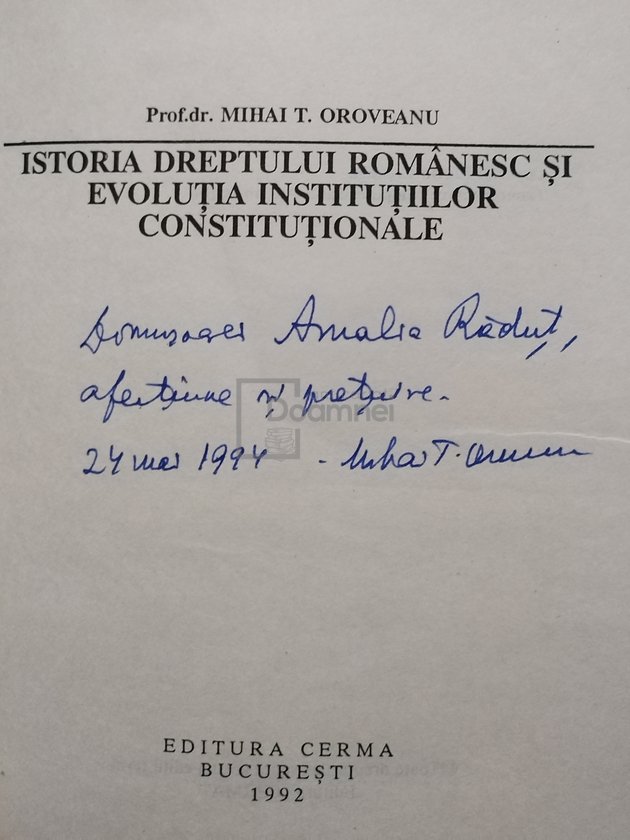 Prof.dr. MIHAI T. OROVEANU
ISTORIA DREPTULUI ROMÂNESC ȘI
EVOLUȚIA INSTITUȚIILOR
CONSTITUȚIONALE
Domnișoarei Amalia Răduț,
afecțiune și prețuire.
24 mai 1994 - Mihai T. Oroveanu
Doamnei
EDITURA CERMA
BUCUREȘTI
1992